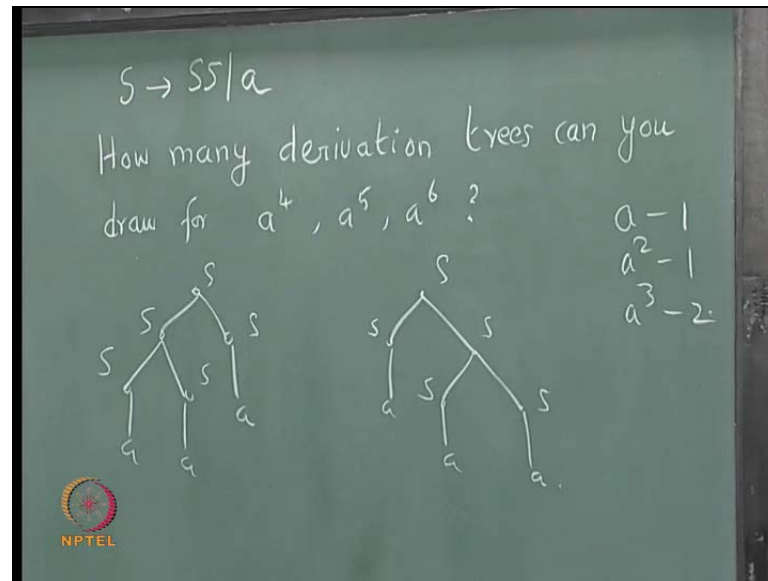 S → SS|a
How many derivation trees can you
draw for a⁴, a⁵, a⁶ ?
a – 1
a² – 1
a³ – 2.
S
S S
S S
a a a
S
S S
a S S
a a.
NPTEL